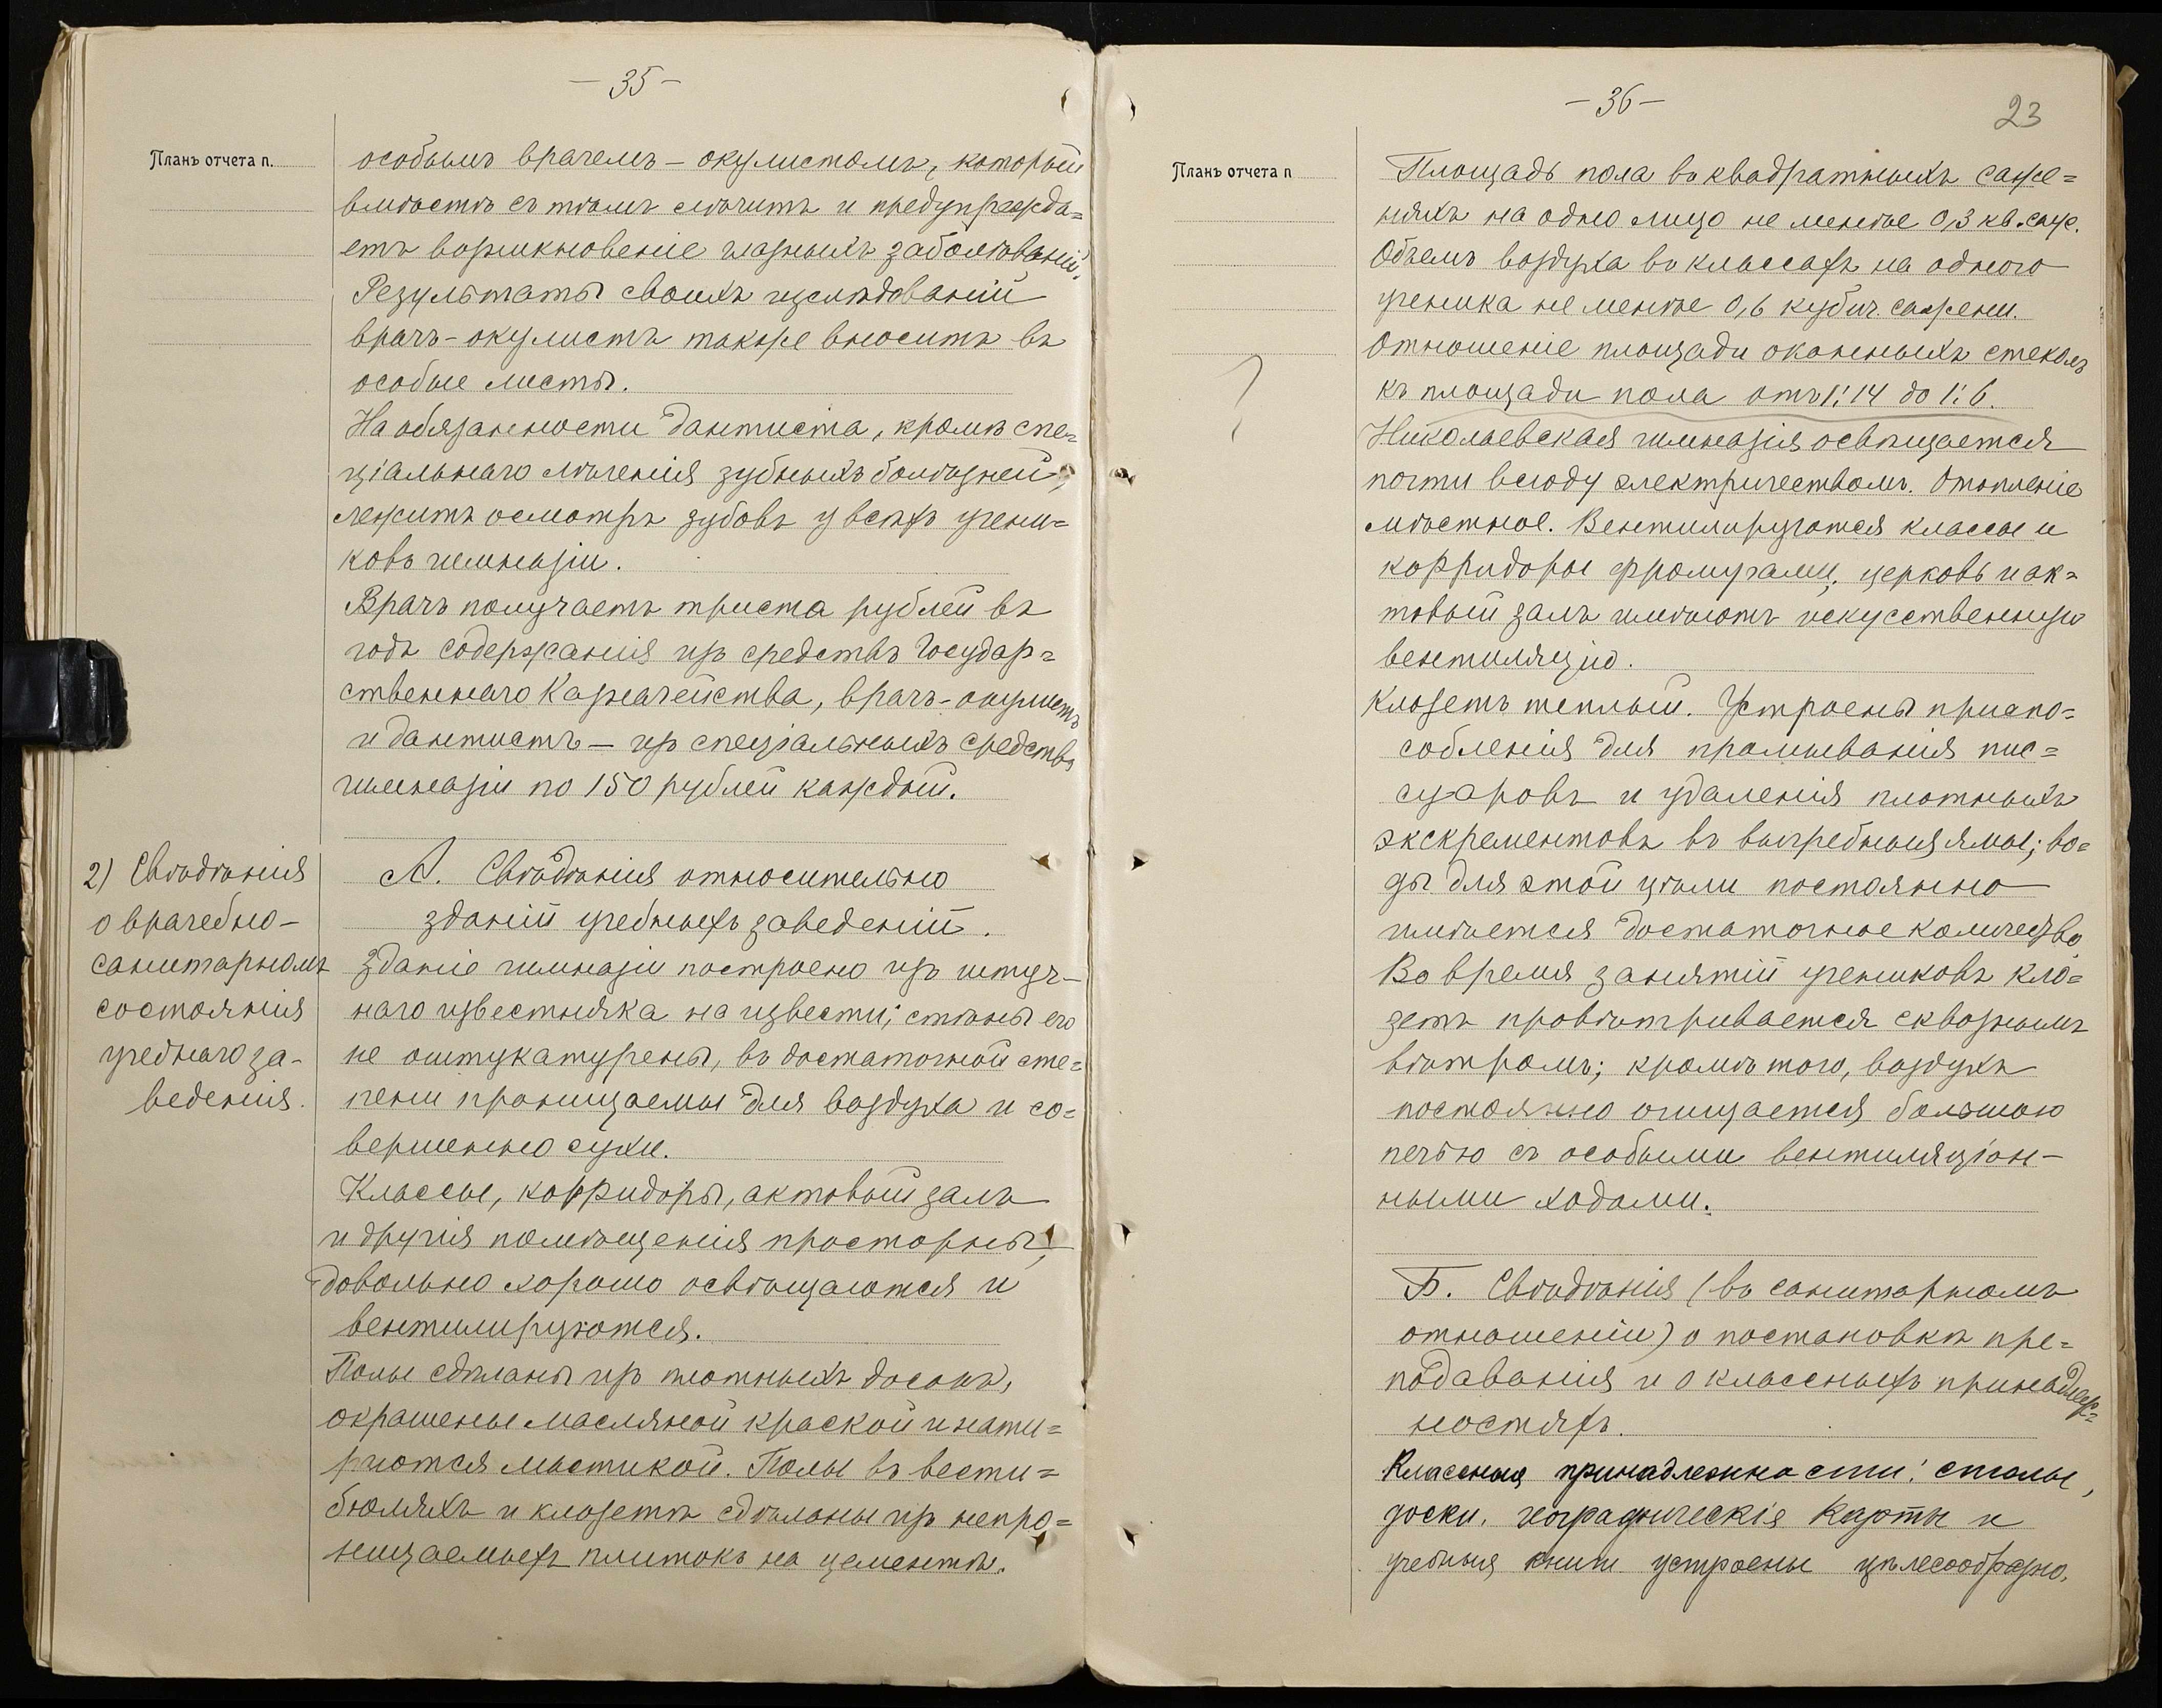 — 35 —
Планъ отчета п.
особымъ врачемъ – окулистомъ, который
вмѣстѣ съ тѣмъ лѣчитъ и предупрежда=
етъ возникновеніе глазныхъ заболѣваній.
Результаты своихъ изслѣдованій
врачъ-окулистъ также вноситъ въ
особые листы.
На обязанности дантиста, кромѣ спе=
ціальнаго лѣченія зубныхъ болѣзней,
лежитъ осмотръ зубовъ у всѣхъ учени=
ковъ гимназіи.
Врачъ получаетъ триста рублей въ
годъ содержанія изъ средствъ Государ=
ственнаго Казначейства, врачъ-окулистъ
и дантистъ — изъ спеціальныхъ средствъ
гимназіи по 150 рублей каждый.
2) Свѣдѣнія
о врачебно-
санитарномъ
состоянія
учебнаго за-
веденія.
А. Свѣдѣнія относительно
зданій учебныхъ заведеній.
Зданіе гимназіи построено изъ штуч-
наго известняка на извести; стѣны его
не оштукатурены, въ достаточной сте=
пени проницаемы для воздуха и со=
вершенно сухи.
Классы, корридоры, актовый залъ
и другія помѣщенія просторны,
довольно хорошо освѣщаются и
вентилируются.
Полы сдѣланы изъ плотныхъ досокъ,
окрашены масляной краской и нати=
раются мастикой. Полы въ вести=
бюляхъ и клозетѣ сдѣланы изъ непро=
ницаемыхъ плитокъ на цементѣ.
— 36 —
23
Планъ отчета п
Площадь пола въ квадратныхъ саже=
няхъ на одно лицо не менѣе 0,3 кв. саж.
Объемъ воздуха въ классахъ на одного
ученика не менѣе 0,6 кубич. сажени.
Отношеніе площади оконныхъ стеколъ
къ площади пола отъ 1:14 до 1:6.
?
Николаевская гимназія освѣщается
почти всюду электричествомъ. Отопленіе
мѣстное. Вентилируются классы и
корридоры фромугами, церковь и ак=
товый залъ имѣютъ искусственную
вентиляцію.
Клозетъ теплый. Устроены приспо=
собленія для промыванія пис=
суаровъ и удаленія плотныхъ
экскрементовъ въ выгребныя ямы; во=
ды для этой цѣли постоянно
имѣется достаточное количество
Во время занятій учениковъ кло=
зетъ провѣтривается сквознымъ
вѣтромъ; кромѣ того, воздухъ
постоянно очищается большою
печью съ особыми вентиляціон-
ными ходами.
Б. Свѣдѣнія (въ санитарномъ
отношеніи) о постановкѣ пре=
подаванія и о классныхъ принадлеж=
ностяхъ.
Классныя принадлежности: столы,
доски, географическія карты и
учебныя книги устроены цѣлесообразно.